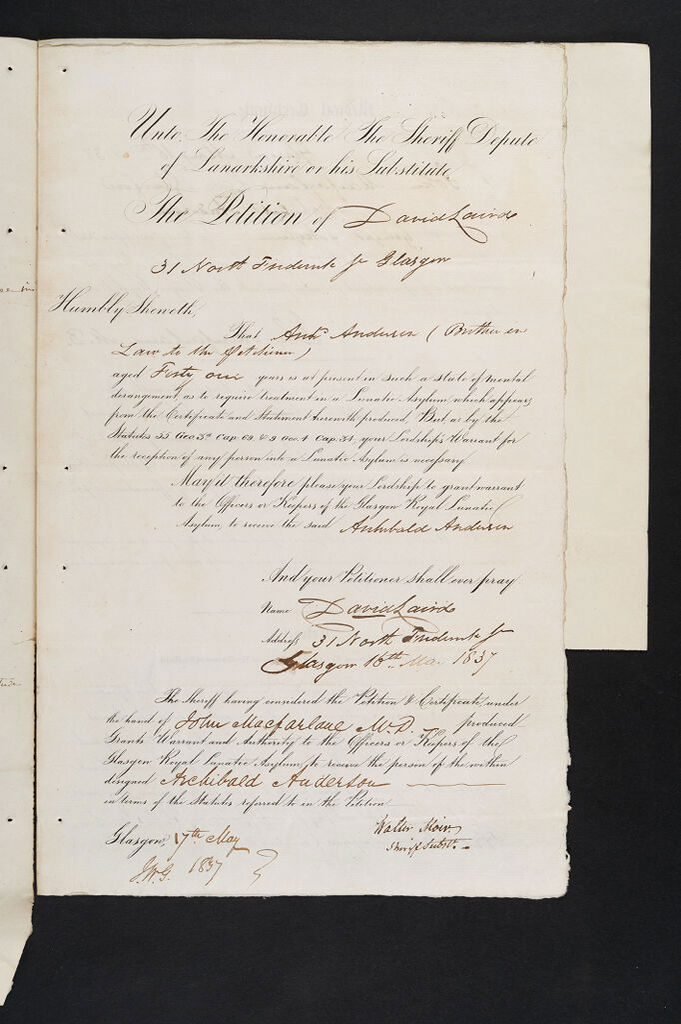 Unto The Honorable The Sheriff Depute
of Lanarkshire or his Substitute
The Petition of David Laird
31 North Frederick St Glasgow
Humbly Sheweth,
That Archd Anderson (Brother in
Law to the Petitioner)
aged Forty one years is at present in such a state of mental
derangement, as to require treatment in a Lunatic Asylum which appears
from the Certificate and Statement herewith produced, But, as by the
Statutes 55 Geo. 3d Cap. 69, & 9 Geo. 4 Cap. 34, your Lordship's Warrant for
the reception of any person into a Lunatic Asylum is necessary
May it therefore please your Lordship to grant warrant
to the Officers or Keepers of the Glasgow Royal Lunatic
Asylum, to receive the said Archibald Anderson
And your Petitioner shall ever pray
Name David Laird
Address 31 North Frederick St
Glasgow 16th May 1837
The Sheriff having considered the Petition & Certificate under
the hand of John Macfarlane M.D. produced
Grants Warrant and Authority to the Officers or Keepers of the
Glasgow Royal Lunatic Asylum, to receive the person of the within
designed Archibald Anderson
in terms of the Statutes referred to in the Petition
Glasgow, 17th May
1837
Walter Moir,
Sheriff Substt.
J.W.G.